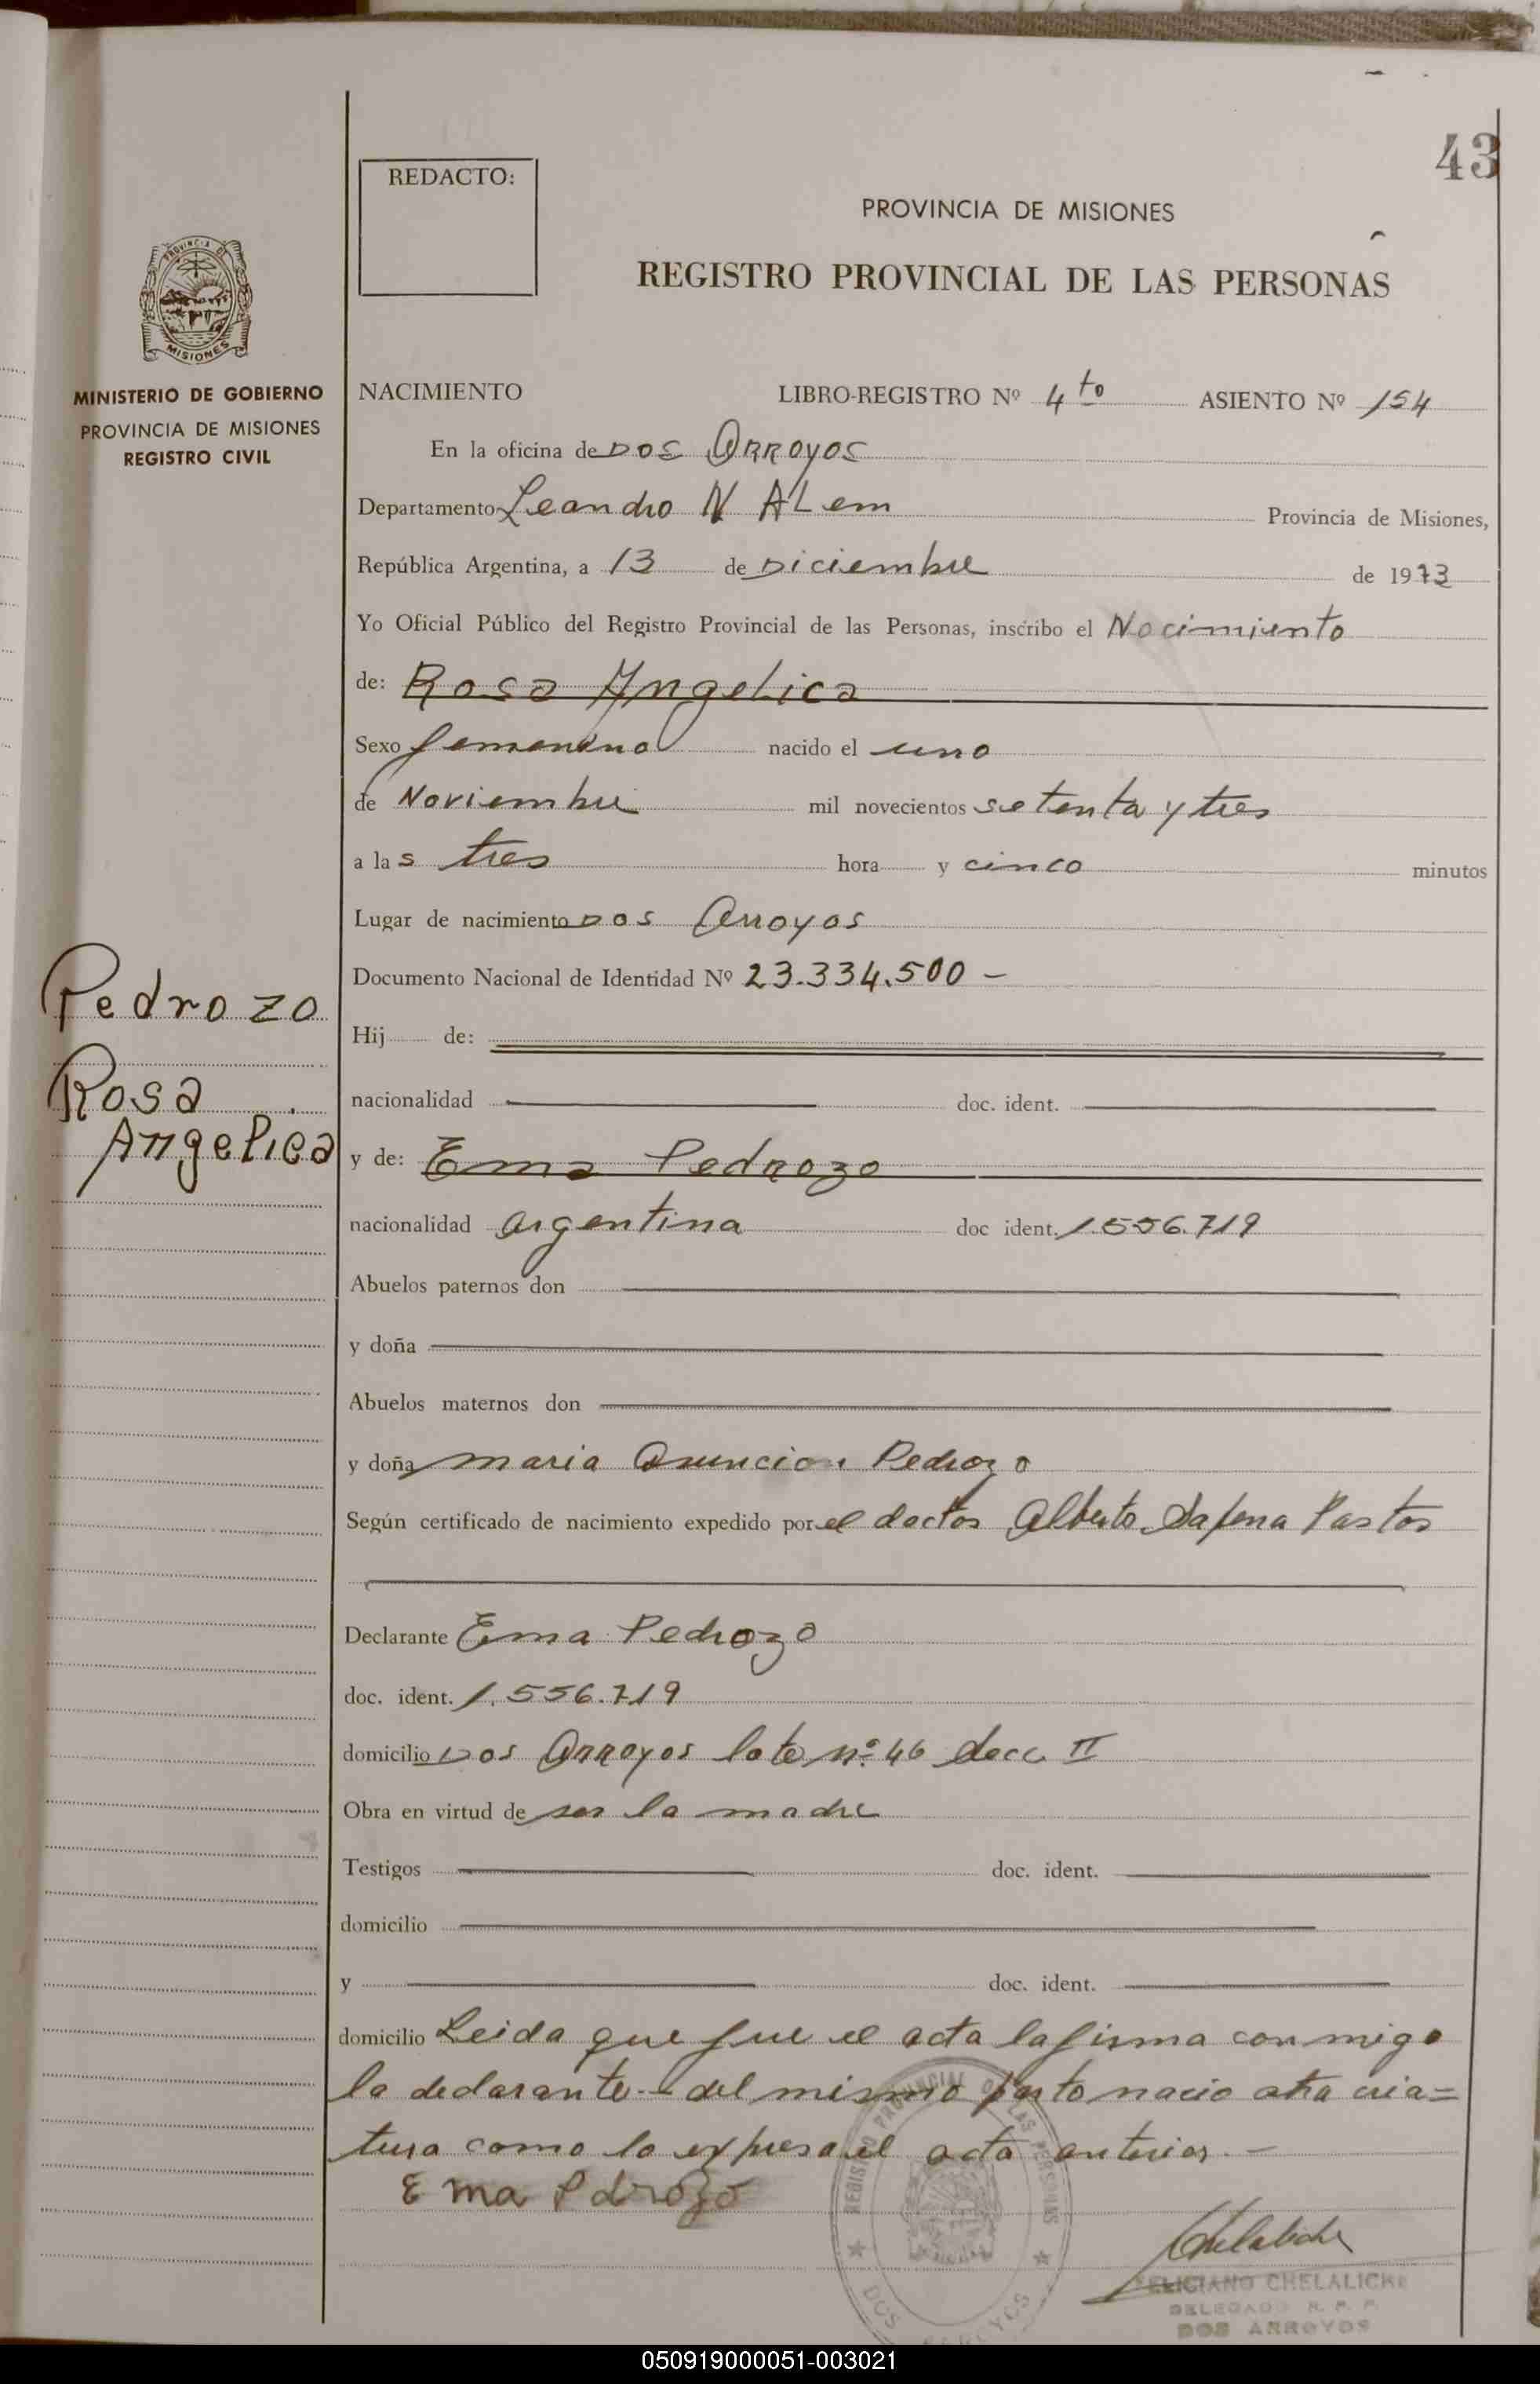 43
REDACTO:
PROVINCIA DE MISIONES
REGISTRO PROVINCIAL DE LAS PERSONAS
PROVINCIA DE
MISIONES
MINISTERIO DE GOBIERNO
PROVINCIA DE MISIONES
REGISTRO CIVIL
NACIMIENTO LIBRO-REGISTRO Nº 4to ASIENTO Nº 154
En la oficina de Dos Arroyos
Departamento Leandro N ALem Provincia de Misiones,
República Argentina, a 13 de Diciembre de 1973
Yo Oficial Público del Registro Provincial de las Personas, inscribo el Nacimiento
de: Rosa Angelica
Sexo femenino nacido el uno
de Noviembre mil novecientos setenta y tres
a las tres hora y cinco minutos
Lugar de nacimiento Dos Arroyos
Documento Nacional de Identidad Nº 23.334.500 -
Pedrozo
Rosa
Angelica
Hij de:
nacionalidad doc. ident.
y de: Ema Pedrozo
nacionalidad argentina doc ident. 1.556.719
Abuelos paternos don
y doña
Abuelos maternos don
y doña maria Asuncion Pedrozo
Según certificado de nacimiento expedido por el doctor Alberto Pastor
Declarante Ema Pedrozo
doc. ident. 1.556.719
domicilio Dos Arroyos lote nº 46 Secc II
Obra en virtud de ser la madre
Testigos doc. ident.
domicilio
y doc. ident.
domicilio Leida que fue el acta la firma conmigo
la declarante - del mismo parto nacio otra cria=
tura como lo expresa el acta anterior. -
Ema Pdrozo
REGISTRO PROVINCIAL DE LAS PERSONAS
DOS ARROYOS
Chelaliche
FELICIANO CHELALICHE
DELEGADO R. P. P.
DOS ARROYOS
050919000051-003021